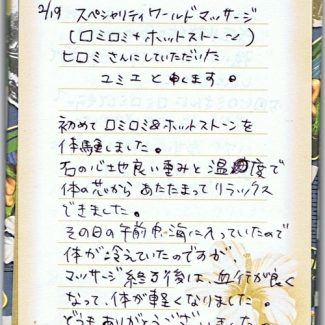 2/19 スペシャリティワールドマッサージ
(ロミロミ+ホットストーン)
ヒロミさんにしていただいた
ユミエと申します。
初めてロミロミ&ホットストーンを
体験しました。
石の心地良い重みと温度で
体の芯からあたたまってリラックス
できました。
その日の午前中海に入っていたので
体が冷えていたのですが、
マッサージ終了後は、血行が良く
なって、体が軽くなりました。
どうもありがとうございました。